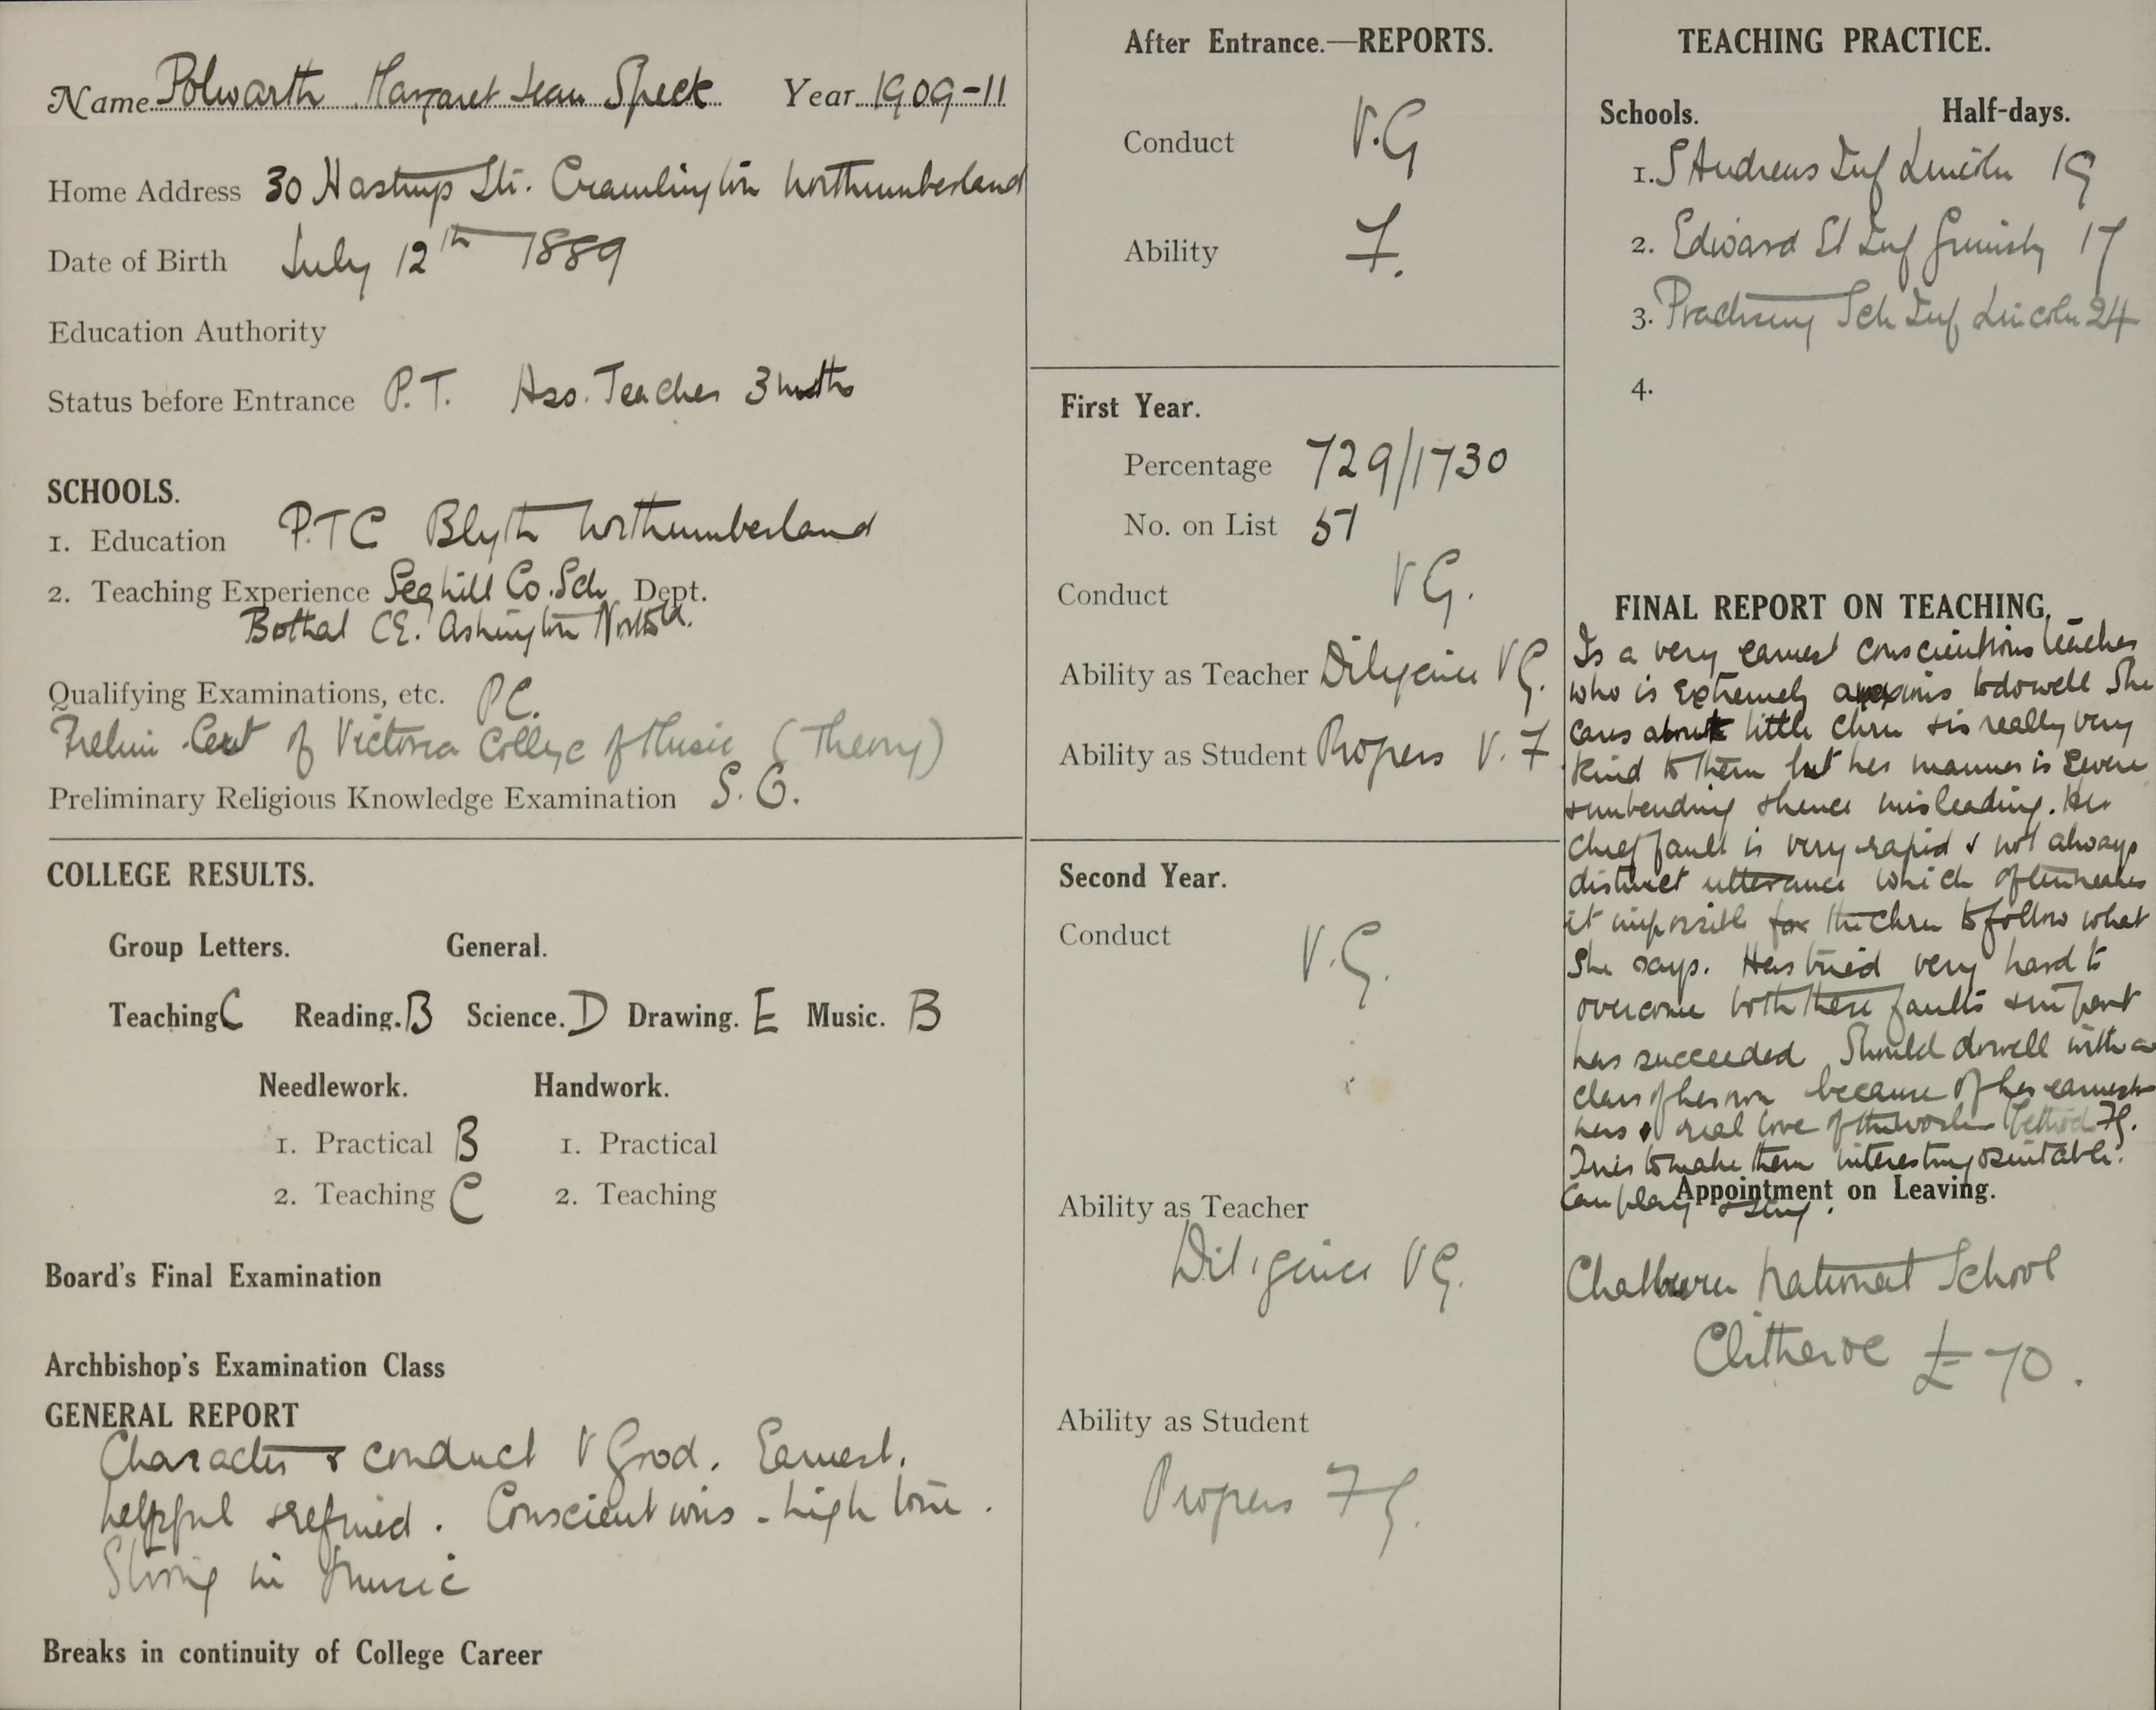 Name Polwarth Margaret Jean Speck Year 1909-11
Home Address 30 Hastrup Str. Cramlington Northumberland
Date of Birth July 12th 1889
Education Authority
Status before Entrance P.T. Ass. Teacher 3 mths
SCHOOLS.
1. Education P.T.C Blyth Northumberland
2. Teaching Experience Seghill Co. Sch Dept.
Bothal C.E. Ashington
Qualifying Examinations, etc. P.C.
Prelim Cert of Victoria College of Music (Theory)
Preliminary Religious Knowledge Examination S. G.
COLLEGE RESULTS.
Group Letters. General.
Teaching C Reading. B Science. D Drawing. E Music. B
Needlework. Handwork.
1. Practical B 1. Practical
2. Teaching C 2. Teaching
Board's Final Examination
Archbishop's Examination Class
GENERAL REPORT
Character & conduct V Good. Earnest.
helpful & refined. Conscientious - high tone.
Strong in Music
Breaks in continuity of College Career
After Entrance.—REPORTS.
Conduct V.G
Ability F.
First Year.
Percentage 729/1730
No. on List 51
Conduct V G.
Ability as Teacher Diligence V G.
Ability as Student Progress V. F
Second Year.
Conduct V.G.
Ability as Teacher
Diligence V G.
Ability as Student
Progress F G.
TEACHING PRACTICE.
Schools. Half-days.
1. S Andrews Inf Lincoln 19
2. Edward St Inf Grimsby 17
3. Practising Sch Inf Lincoln 24
4.
FINAL REPORT ON TEACHING.
Is a very earnest conscientious teacher
who is extremely anxious to do well She
cares about little chrn & is really very
kind to them but her manner is severe
& unbending & hence misleading. Her
chief fault is very rapid & not always
distinct utterance which often makes
it impossible for the chrn to follow what
she says. Has tried very hard to
overcome both these faults & in part
has succeeded Should do well with a
class of her own because of her earnest
ness & real love of the work Method FG.
Tries to make them interesting & suitable.
Can play & sing.
Appointment on Leaving.
Chatburn National School
Clitheroe £70.